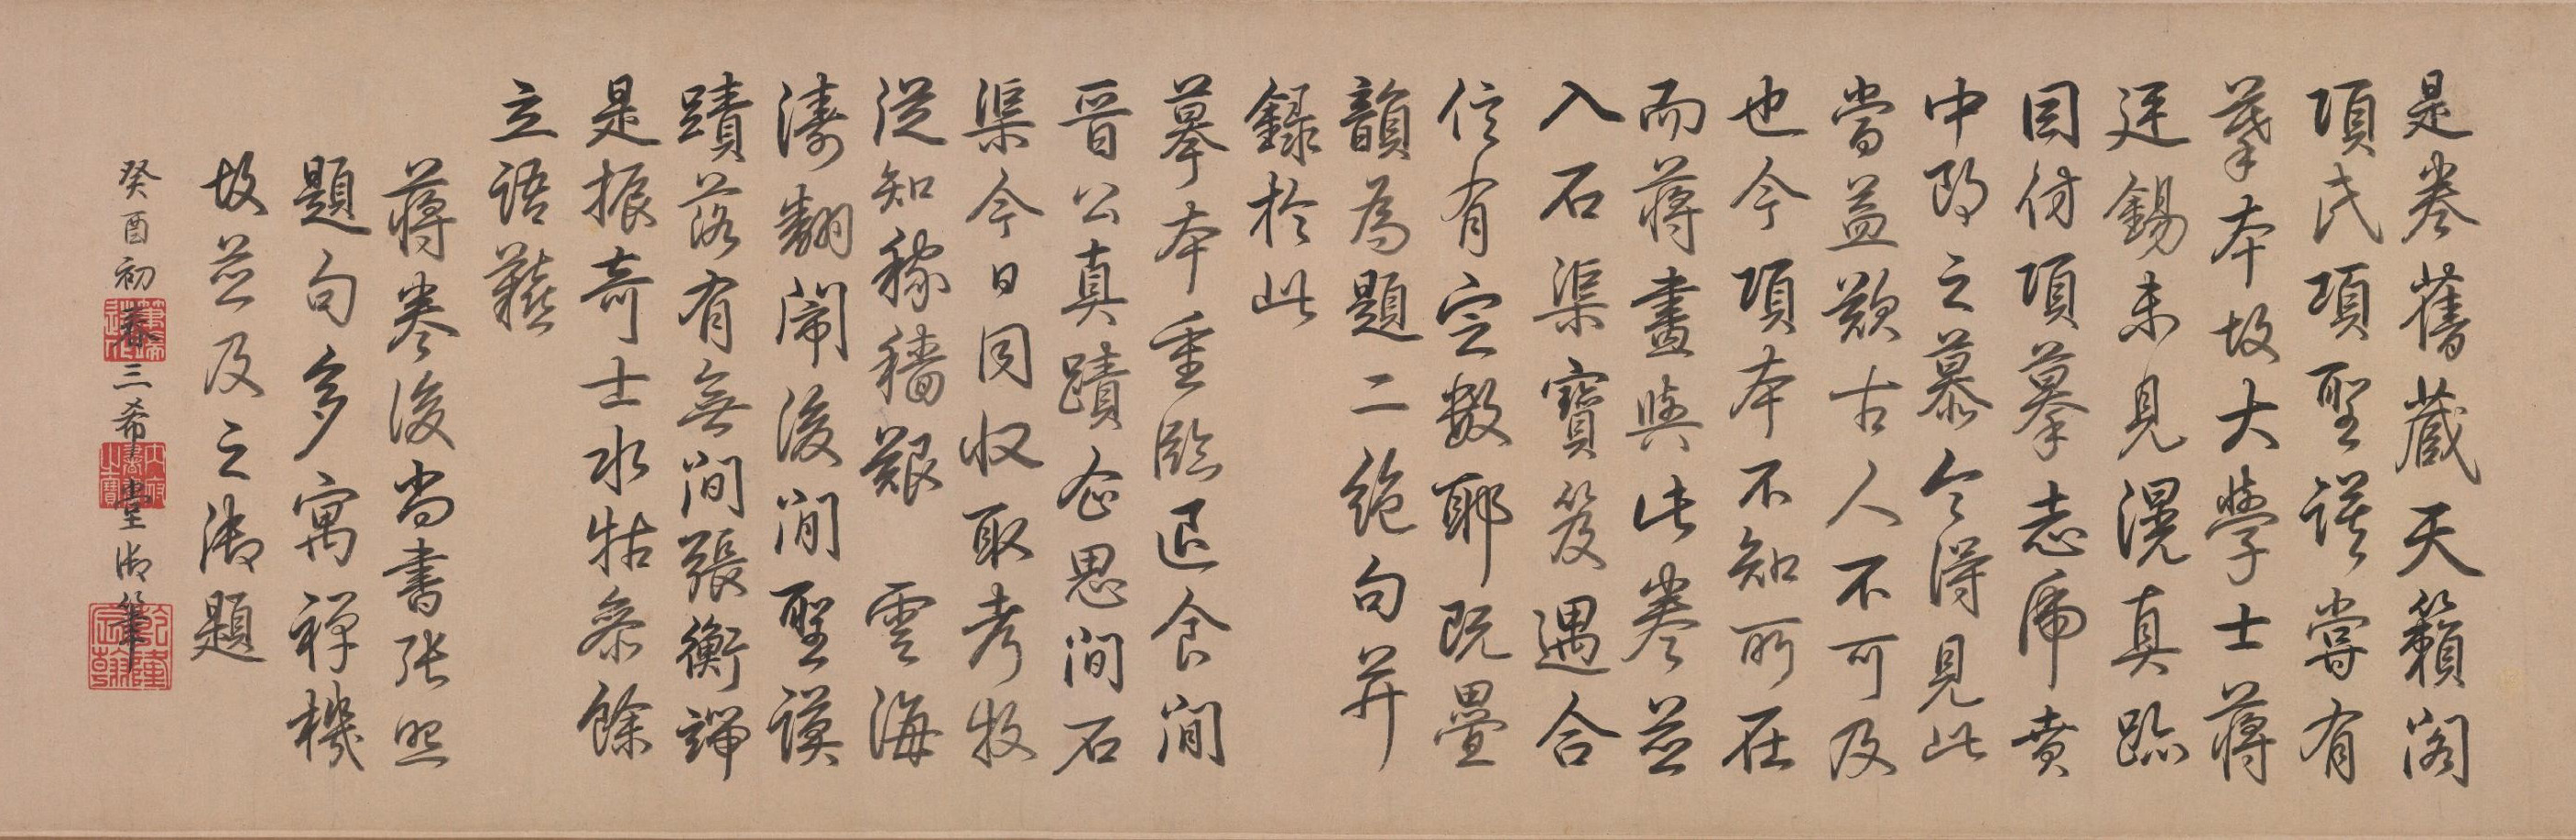 是卷舊藏天籟閣
項氏項聖謨嘗有
摹本故大學士蔣
廷錫未見滉真跡
因仿項摹志虎賁
中郎之慕今得見此
當益歎古人不可及
也今項本不知所在
而蔣畫與此卷並
入石渠寶笈遇合
信有定數耶既疊
韻為題二絕句并
錄於此
摹本重臨退食間
晉公真蹟企思間石
渠今日同収取考牧
從知稼穡艱 雲海
濤翻鬧後閒聖謨
蹟落有無間張衡端
是振奇士水牯叅餘
立語艱
蔣卷後尚書張照
題句多寓禪機
故並及之御題
癸酉初春三希堂御筆
乾隆宸翰